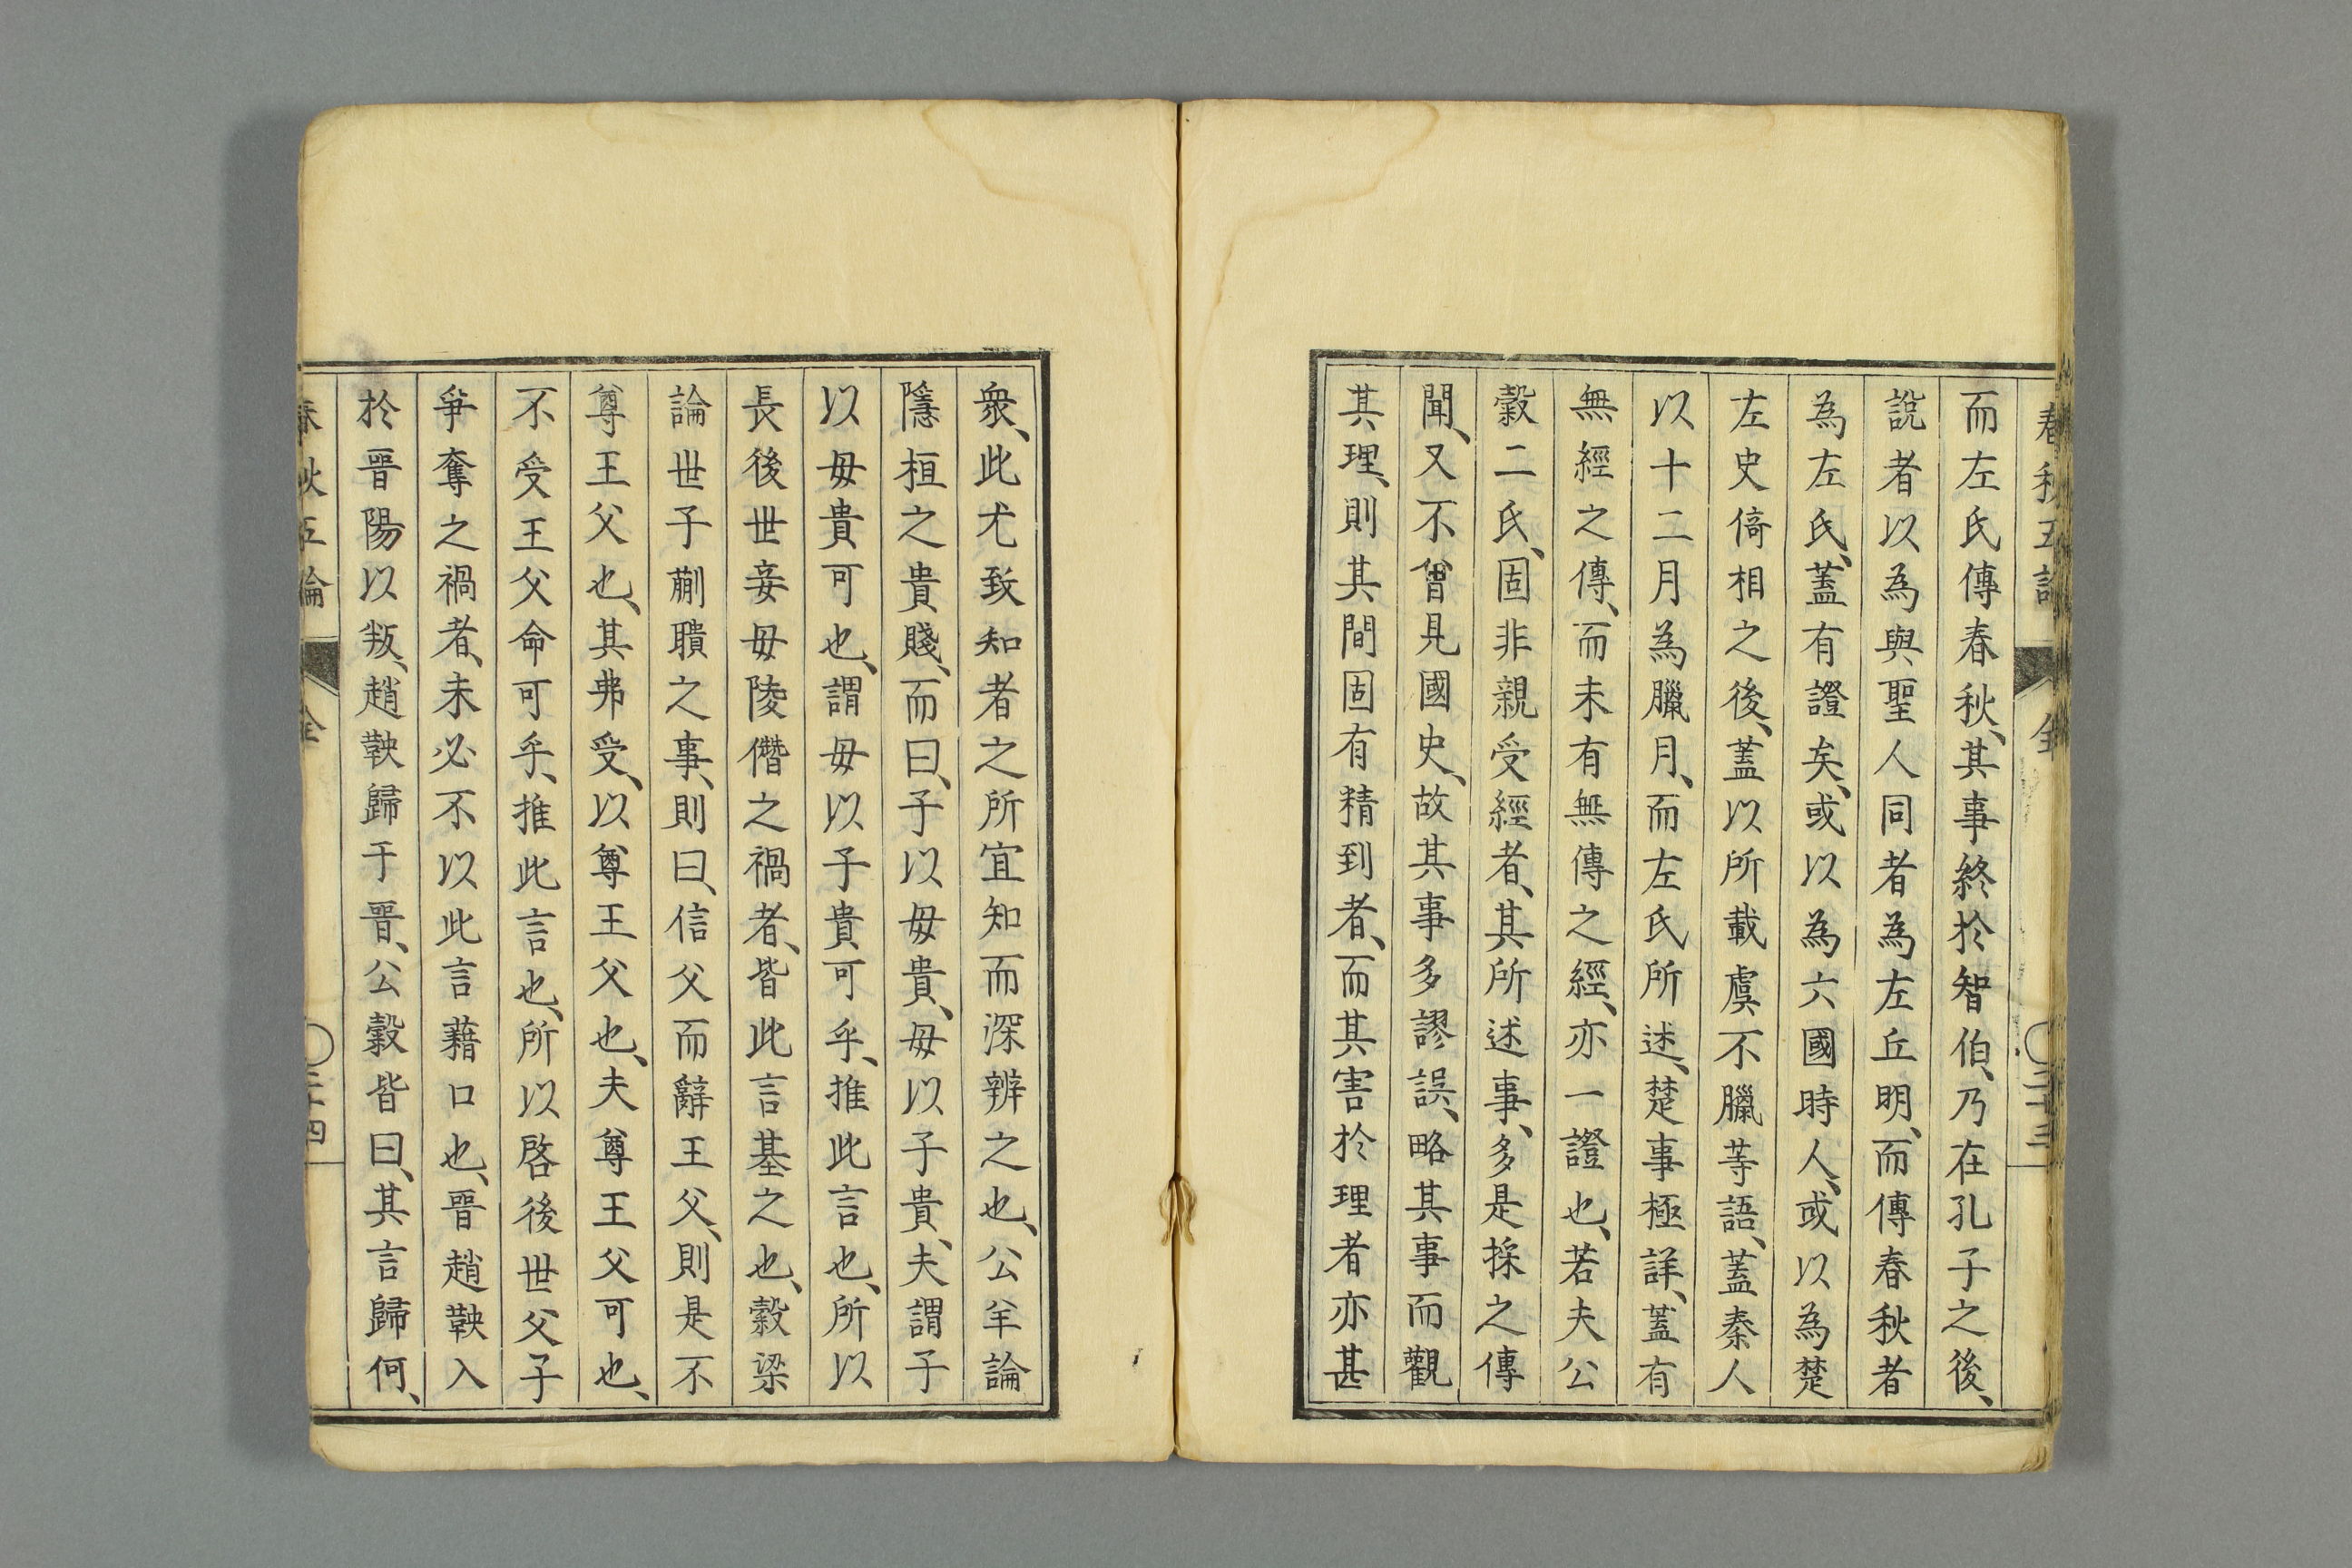 而左氏傳春秋、其事終於智伯、乃在孔子之後、
說者以為與聖人同者為左丘明、而傳春秋者
為左氏、蓋有證矣、或以為六國時人、或以為楚
左史倚相之後、蓋以所載虞不臘等語、蓋秦人
以十二月為臘月、而左氏所述、楚事極詳、蓋有
無經之傳、而未有無傳之經、亦一證也、若夫公
穀二氏、固非親受經者、其所述事、多是採之傳
聞、又不曾見國史、故其事多謬誤、略其事而觀
其理、則其間固有精到者、而其害於理者亦甚
衆、此尤致知者之所宜知而深辨之也、公羊論
隱桓之貴賤、而曰、子以毋貴、毋以子貴、夫謂子
以毋貴可也、謂毋以子貴可乎、推此言也、所以
長後世妾毋陵僭之禍者、皆此言基之也、穀梁
論世子蒯聵之事、則曰、信父而辭王父、則是不
尊王父也、其弗受、以尊王父也、夫尊王父可也、
不受王父命可乎、推此言也、所以啓後世父子
爭奪之禍者、未必不以此言藉口也、晉趙鞅入
於晉陽以叛、趙鞅歸于晉、公穀皆曰、其言歸何、
春秋五論